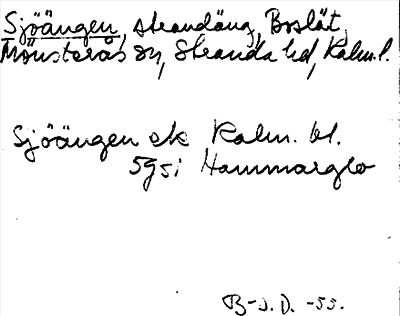 Sjöängen, strandäng, Boslät,
Mönsterås sn, Stranda hd, Kalm. l.
Sjöängen ek Kalm. bl.
5g5i Hammarglo
B-J.D. -55.